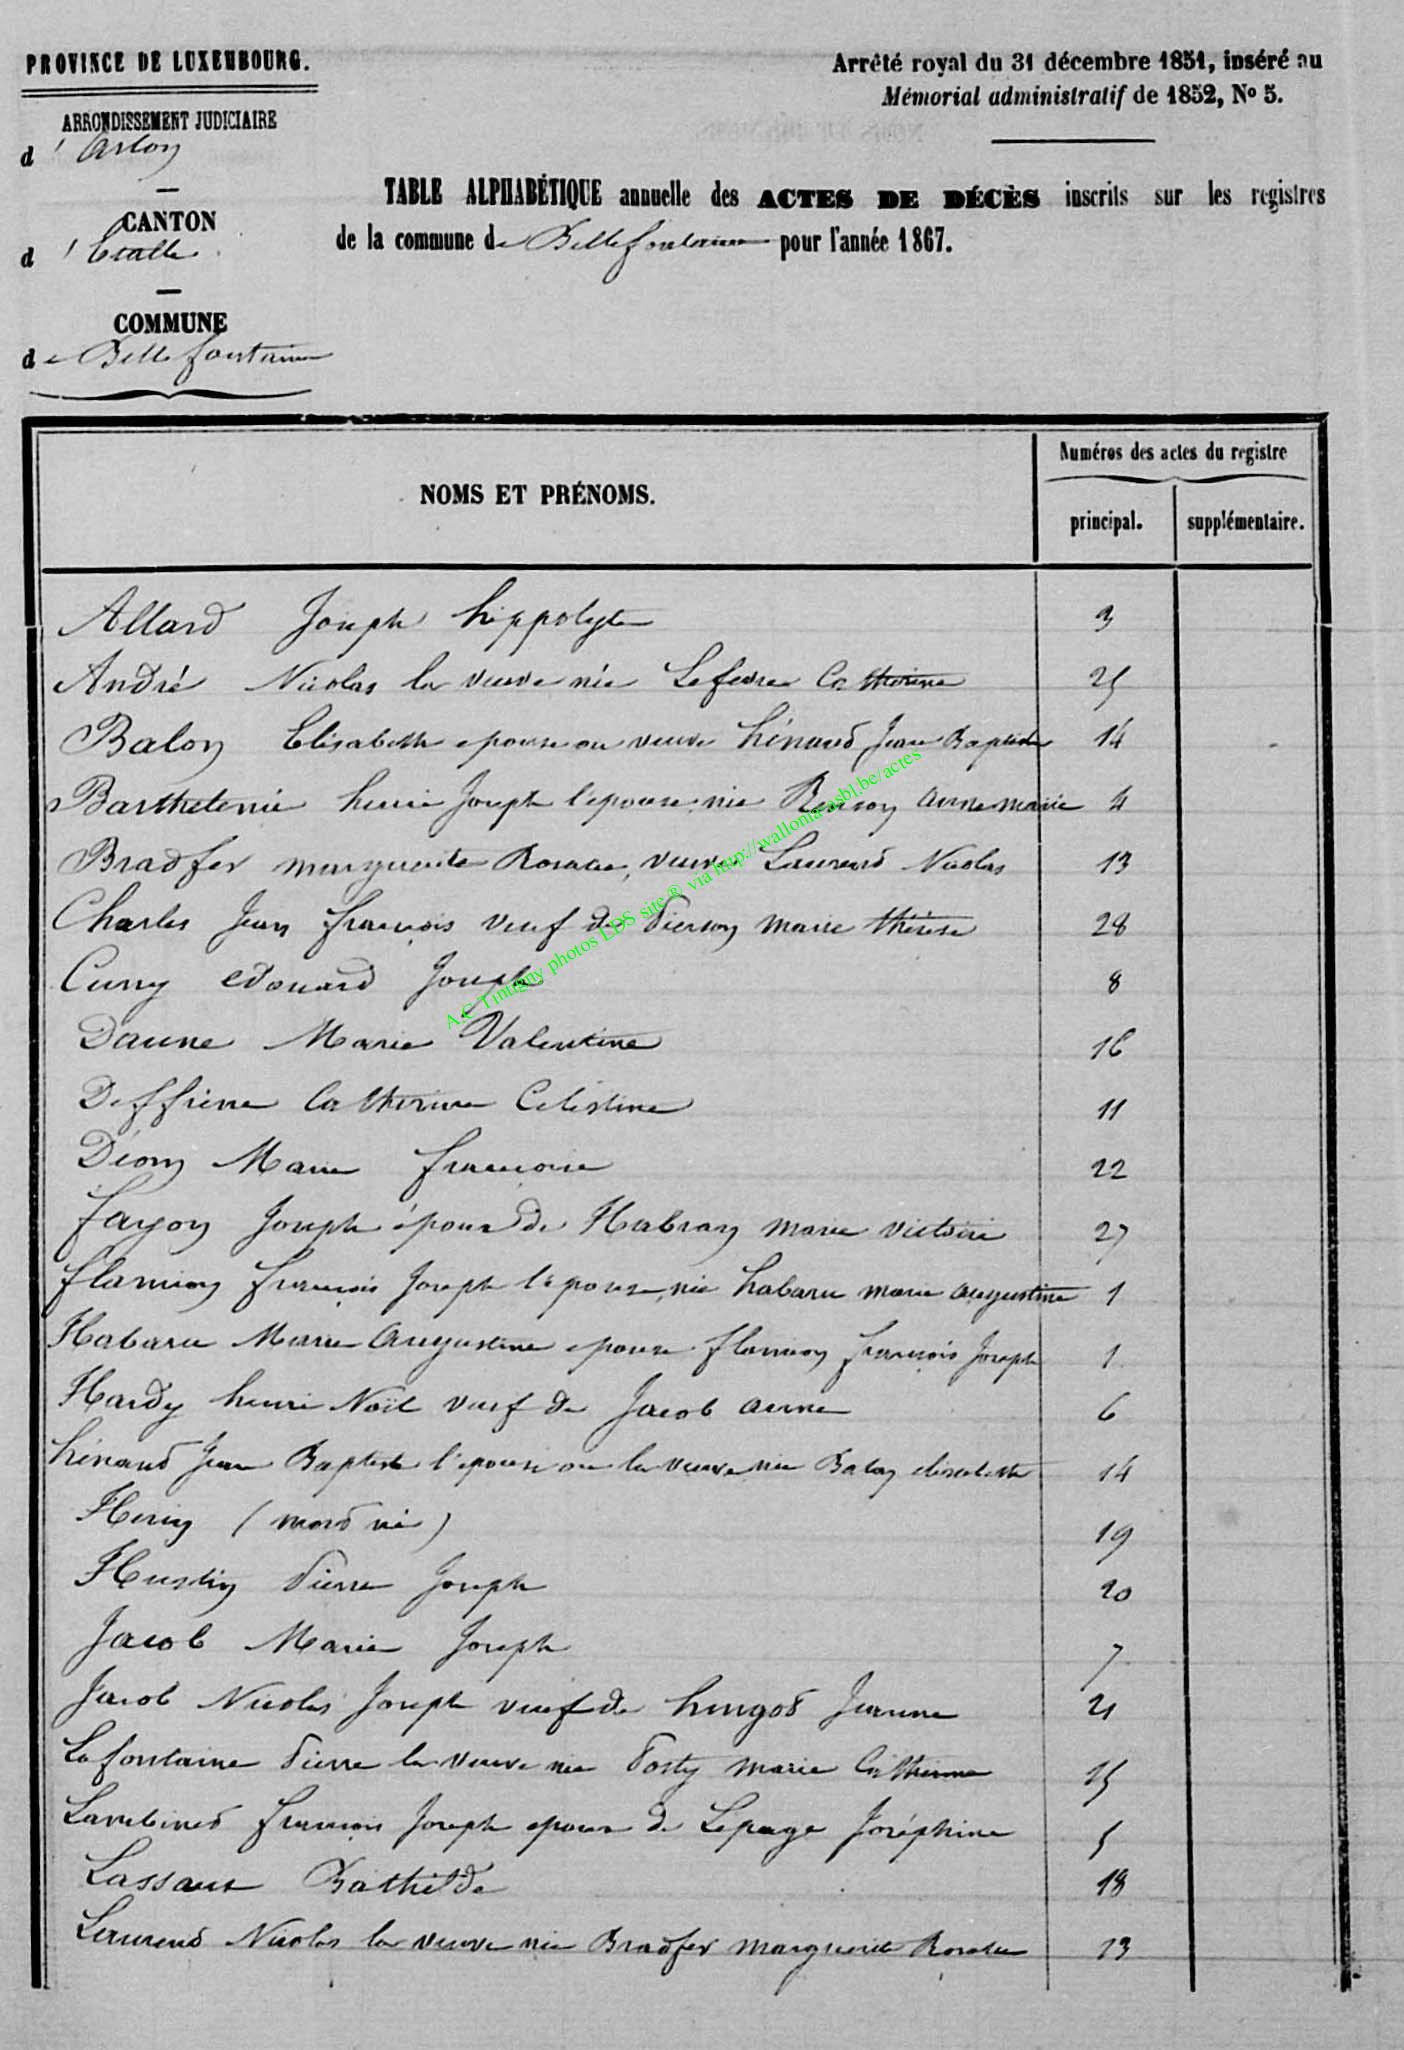 PROVINCE DE LUXEMBOURG.
Arrêté royal du 31 décembre 1851, inséré au
Mémorial administratif de 1852, No 5.
ARRONDISSEMENT JUDICIAIRE
d'Arlon
CANTON
d'Etalle
COMMUNE
de Bellefontaine
TABLE ALPHABÉTIQUE annuelle des ACTES DE DÉCÈS inscrits sur les registres
de la commune de Bellefontaine pour l'année 1867.
NOMS ET PRÉNOMS.
Numéros des actes du registre
principal.
supplémentaire.
Allard Joseph hippolyte 3
André Nicolas la veuve née Lefevre Catherine 25
Balon Elisabeth epouse ou veuve hénaud Jean Baptiste 14
Barthelemi henri Joseph l'epouse née Renson anne marie 4
Bradfer marguerite Rosalie, veuve Laurend Nicolas 13
Charles Jean françois veuf de Pierson marie thérèse 28
Cuny edouard Joseph 8
Daune Marie Valentine 16
Deffrène Catherine Celestine 11
Déom Marie françoise 22
fayon Joseph époux de Habran marie victoire 27
flamion françois Joseph l'epouse née habaru marie augustine 1
Habaru Marie Augustine epouse flamion françois Joseph 1
Hardy henri Noël veuf de Jacob anne 6
hénaud Jean Baptiste l'epouse ou la veuve née Balon elisabeth 14
(mord né) 19
Hustin Pierre Joseph 20
Jacob Marie Joseph 7
Jacob Nicolas Joseph veuf de hingod Jeanne 21
Lafontaine Pierre la veuve née Posty marie Catherine 15
Lambined françois Joseph epoux de Lepage Joséphine 5
Lassaux Bathilde 18
Laurend Nicolas la veuve née Bradfer marguerite Rosalie 13
A.C Tintigny photos LDS site ® via http://wallonia-asbl.be/actes